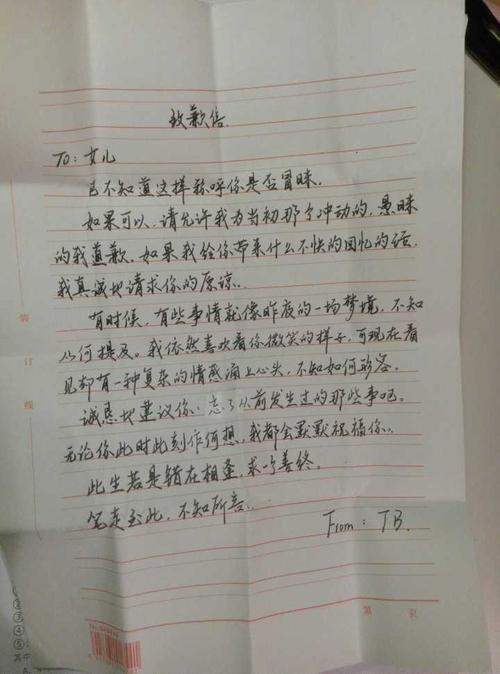 致歉信.
To: 女儿
已不知道这样称呼你是否冒昧.
如果可以,请允许我为当初那个冲动的,愚昧
的我道歉.如果我给你带来什么不快的回忆的话,
我真诚地请求你的原谅..
有时候,有些事情就像昨夜的一场梦境,不知
从何提及。我依然喜欢看你微笑的样子,可现在看
见却有一种复杂的情感涌上心头,不知如何形容。
诚恳地建议你:忘了从前发生过的那些事吧。
无论你此时此刻作何想,我都会默默祝福你..
此生若是错在相逢,求个善终。
笔走至此,不知所言..
From: TB.
装
订
线
第 页
②
③
④
⑤
其中